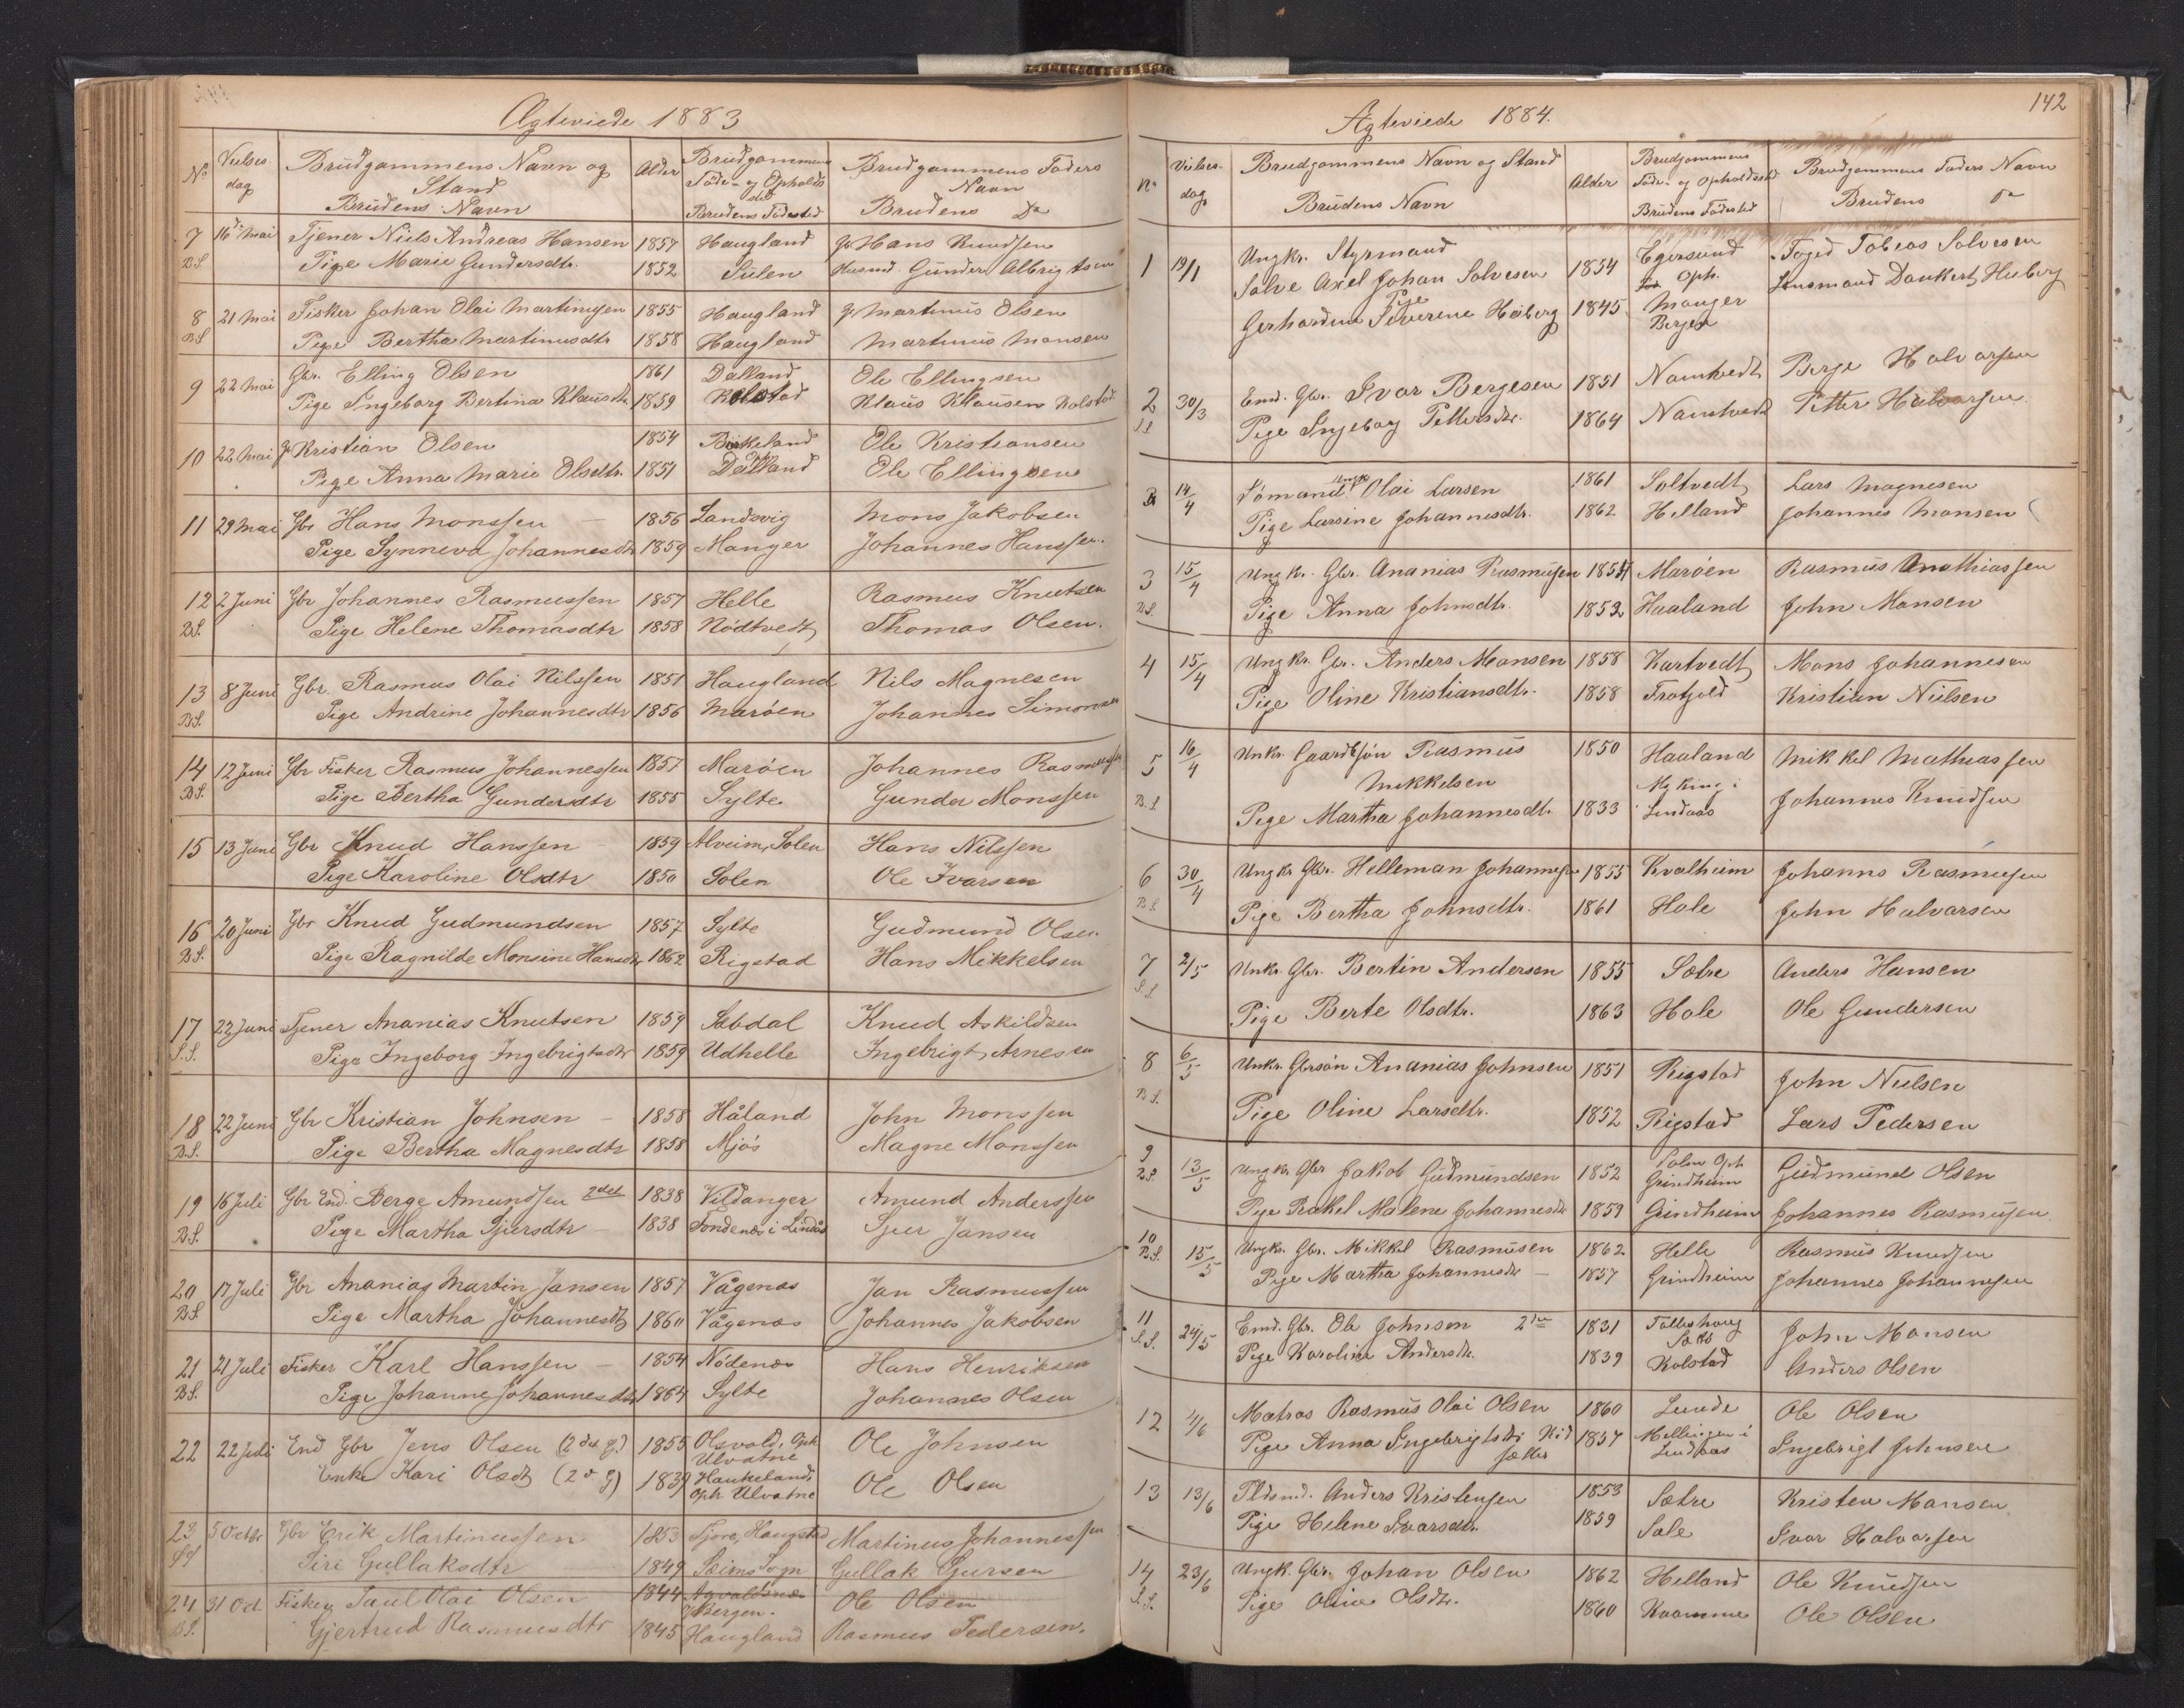 Ægteviede 1883
No
Vielses dag
Brudgommens Navn og Stand
Brudens Navn
Alder
Brudgommens Føde- og Opholdssted
Brudens Fødested
Brudgommens Faders Navn
Brudens Do
7 16de Mai Tjener Niels Andreas Hansen 1857 Haugland Hans Knudsen
B.S. Pige Marie Gundersdtr. 1852 Sulen Husmd. Gunder Albrigtsen
8 21 Mai Fisker Johan Olai Martinussen 1855 Haugland Martinus Olsen
B.S. Pige Bertha Martinusdtr 1858 Haugland Martinus Monsen
9 22 Mai Gbr. Elling Olsen 1861 Dalland Ole Ellingsen
Pige Ingeborg Bertina Klausdtr 1859 Kolstad Klaus Klausen Kolstad
10 22 Mai Kristian Olsen 1854 Birkeland Ole Kristiansen
Pige Anna Marie Olsdtr. 1851 Dalland Ole Ellingsen
11 29 Mai Gbr Hans Monssen 1856 Landsvig Mons Jakobsen
Pige Synneva Johannesdtr 1859 Manger Johannes Hanssen
12 2 Juni Gbr Johannes Rasmussen 1857 Helle Rasmus Knutsen
B.S. Pige Helene Thomasdtr 1858 Nødtvedt Thomas Olsen.
13 8 Juni Gbr. Rasmus Olai Nilssen 1851 Haugland Nils Magnesen
B.S. Pige Andrine Johannesdtr 1856 Marøen Johannes Simonsen
14 12 Juni Gbr Fisker Rasmus Johannessen 1857 Marøen Johannes Rasmussen
B.S. Pige Bertha Gundersdtr 1855 Sylte Gunder Monssen
15 13 Juni Gbr Knud Hanssen 1859 Alveim, Solen Hans Nilssen
Pige Karoline Olsdtr 1850 Solen Ole Ivarsen
16 20 Juni Gbr Knud Gudmundsen 1857 Sylte Gudmund Olsen
B.S. Pige Ragnilde Monsine Hansdtr 1862 Rigstad Hans Mikkelsen
17 22 Juni Tjener Ananias Knutsen 1859 Sæbdal Knud Askildsen
S.S. Pige Ingeborg Ingebrigtsdtr 1859 Udhelle Ingebrigt Arnesen
18 22 Juni Gbr Kristian Johnsen 1858 Håland John Monssen
B.S. Pige Bertha Magnesdtr 1858 Mjøs Magne Monssen
19 16 Juli Gbr End. Berge Amundsen 2det 1838 Vildanger Amund Anderssen
B.S. Pige Martha Sjursdtr 1838 Fondenes i Lindås Sjur Jansen
20 17 Juli Gbr Ananias Martin Jansen 1857 Vågenæs Jan Rasmussen
B.S. Pige Martha Johannesdtr 1860 Vågenæs Johannes Jakobsen
21 21 Juli Fisker Karl Hanssen 1854 Nødenæs Hans Henriksen
B.S. Pige Johanne Johannesdtr 1864 Sylte Johannes Olsen
22 22 Juli End Gbr Jens Olsen (2det g.) 1855 Olsvold, Oph Ulvatne Ole Johnsen
Enke Kari Olsdtr (2 g) 1839 Haukeland, Oph. Ulvatne Ole Olsen
23 5 Octbr Gbr Erik Martinussen 1853 Martinus Johannessen
Siri Gullaksdtr 1849 Seims Sogn Gullak Sjursen
24 31 Oct. Fisker Paul Olai Olsen 1844 Agvaldsnes Bergen. Ole Olsen
B.S. Gjertrud Rasmusdtr 1845 Haugland Rasmus Pedersen.
142
Ægteviede 1884.
No
Vielses dag
Brudgommens Navn og Stand
Brudens Navn
Alder
Brudgommens Føde- og Opholdssted
Brudens Fødested
Brudgommens Faders Navn
Brudens Do
1 19/1 Ungkr. Styrmand
Salve Axel Johan Salvesen 1854 Egersund Oph. Foged Tobias Salvesen
Pige
Gerhardine Severine Heiberg 1845 Manger Bergen Lensmand Dankert Heiberg
2 30/3 Emd. Gbr. Ivar Bergesen 1851 Namtvedt Berge Halvorsen
Pige Ingeborg Pettersdtr. 1864 Namtvedt Petter Halvorsen
14/4 Sømand Ungkr Olai Larsen 1861 Soltvedt Lars Magnesen
Pige Larsine Johannesdtr. 1862 Helland Johannes Monsen
3 15/4 Ungkr. Gbr. Ananias Rasmussen 1854 Marøen Rasmus Mathiassen
Pige Anna Johnsdtr. 1852 Haaland John Monsen
4 15/4 Ungkr. Gbr. Anders Monsen 1858 Kartvedt Mons Johannesen
Pige Oline Kristiansdtr. 1858 Kristian Nielsen
5 16/4 Unkr. Gaardbsøn Rasmus Mikkelsen 1850 Haaland Mikkel Mathiassen
B.S. Pige Martha Johannesdtr. 1833 Myking i Lindaas Johannes Knudsen
6 30/4 Ungkr Gbr. Helleman Johannesen 1855 Kvalheim Johannes Rasmussen
B.S. Pige Bertha Johnsdtr. 1861 Hole John Halvorsen
7 2/5 Unkr. Gbr. Bertin Andersen 1855 Sætre Anders Hansen
S.S. Pige Berte Olsdtr. 1863 Hole Ole Gundersen
8 6/5 Unkr. Gbrsøn Ananias Johnsen 1851 Rigstad John Nielsen
B.S. Pige Oline Larsdtr. 1852 Rigstad Lars Pedersen
9 13/5 Ungkr Gbr Jakob Gudmundsen 1852 Solen Oph Grindheim Gudmund Olsen
B.S. Pige Rakel Malene Johannesdtr 1859 Grindheim Johannes Rasmussen
10 15/5 Ungkr. Gbr. Mikkel Rasmusen 1862 Helle Rasmus Knudsen
B.S. Pige Martha Johannesdtr 1857 Grindheim Johannes Johannesen
11 24/5 Emd. Gbr. Ole Johnsen 2den 1831 John Monsen
S.S. Pige Karoline Andersdtr. 1839 Kolstad Anders Olsen
12 4/6 Matros Rasmus Olai Olsen 1860 Lunde Ole Olsen
Pige Anna Ingebrigtsdtr 1857 Lindaas Ingebrigt Johnsen
13 13/6 Anders Kristensen 1853 Sætre Kristen Monsen
Pige Helene Ivarsdtr. 1859 Sale Ivar Halvorsen
14 23/6 Ungk. Gbr. Johan Olsen 1862 Helland Ole Knudsen
S.S. Pige Oline Olsdtr. 1860 Ole Olsen